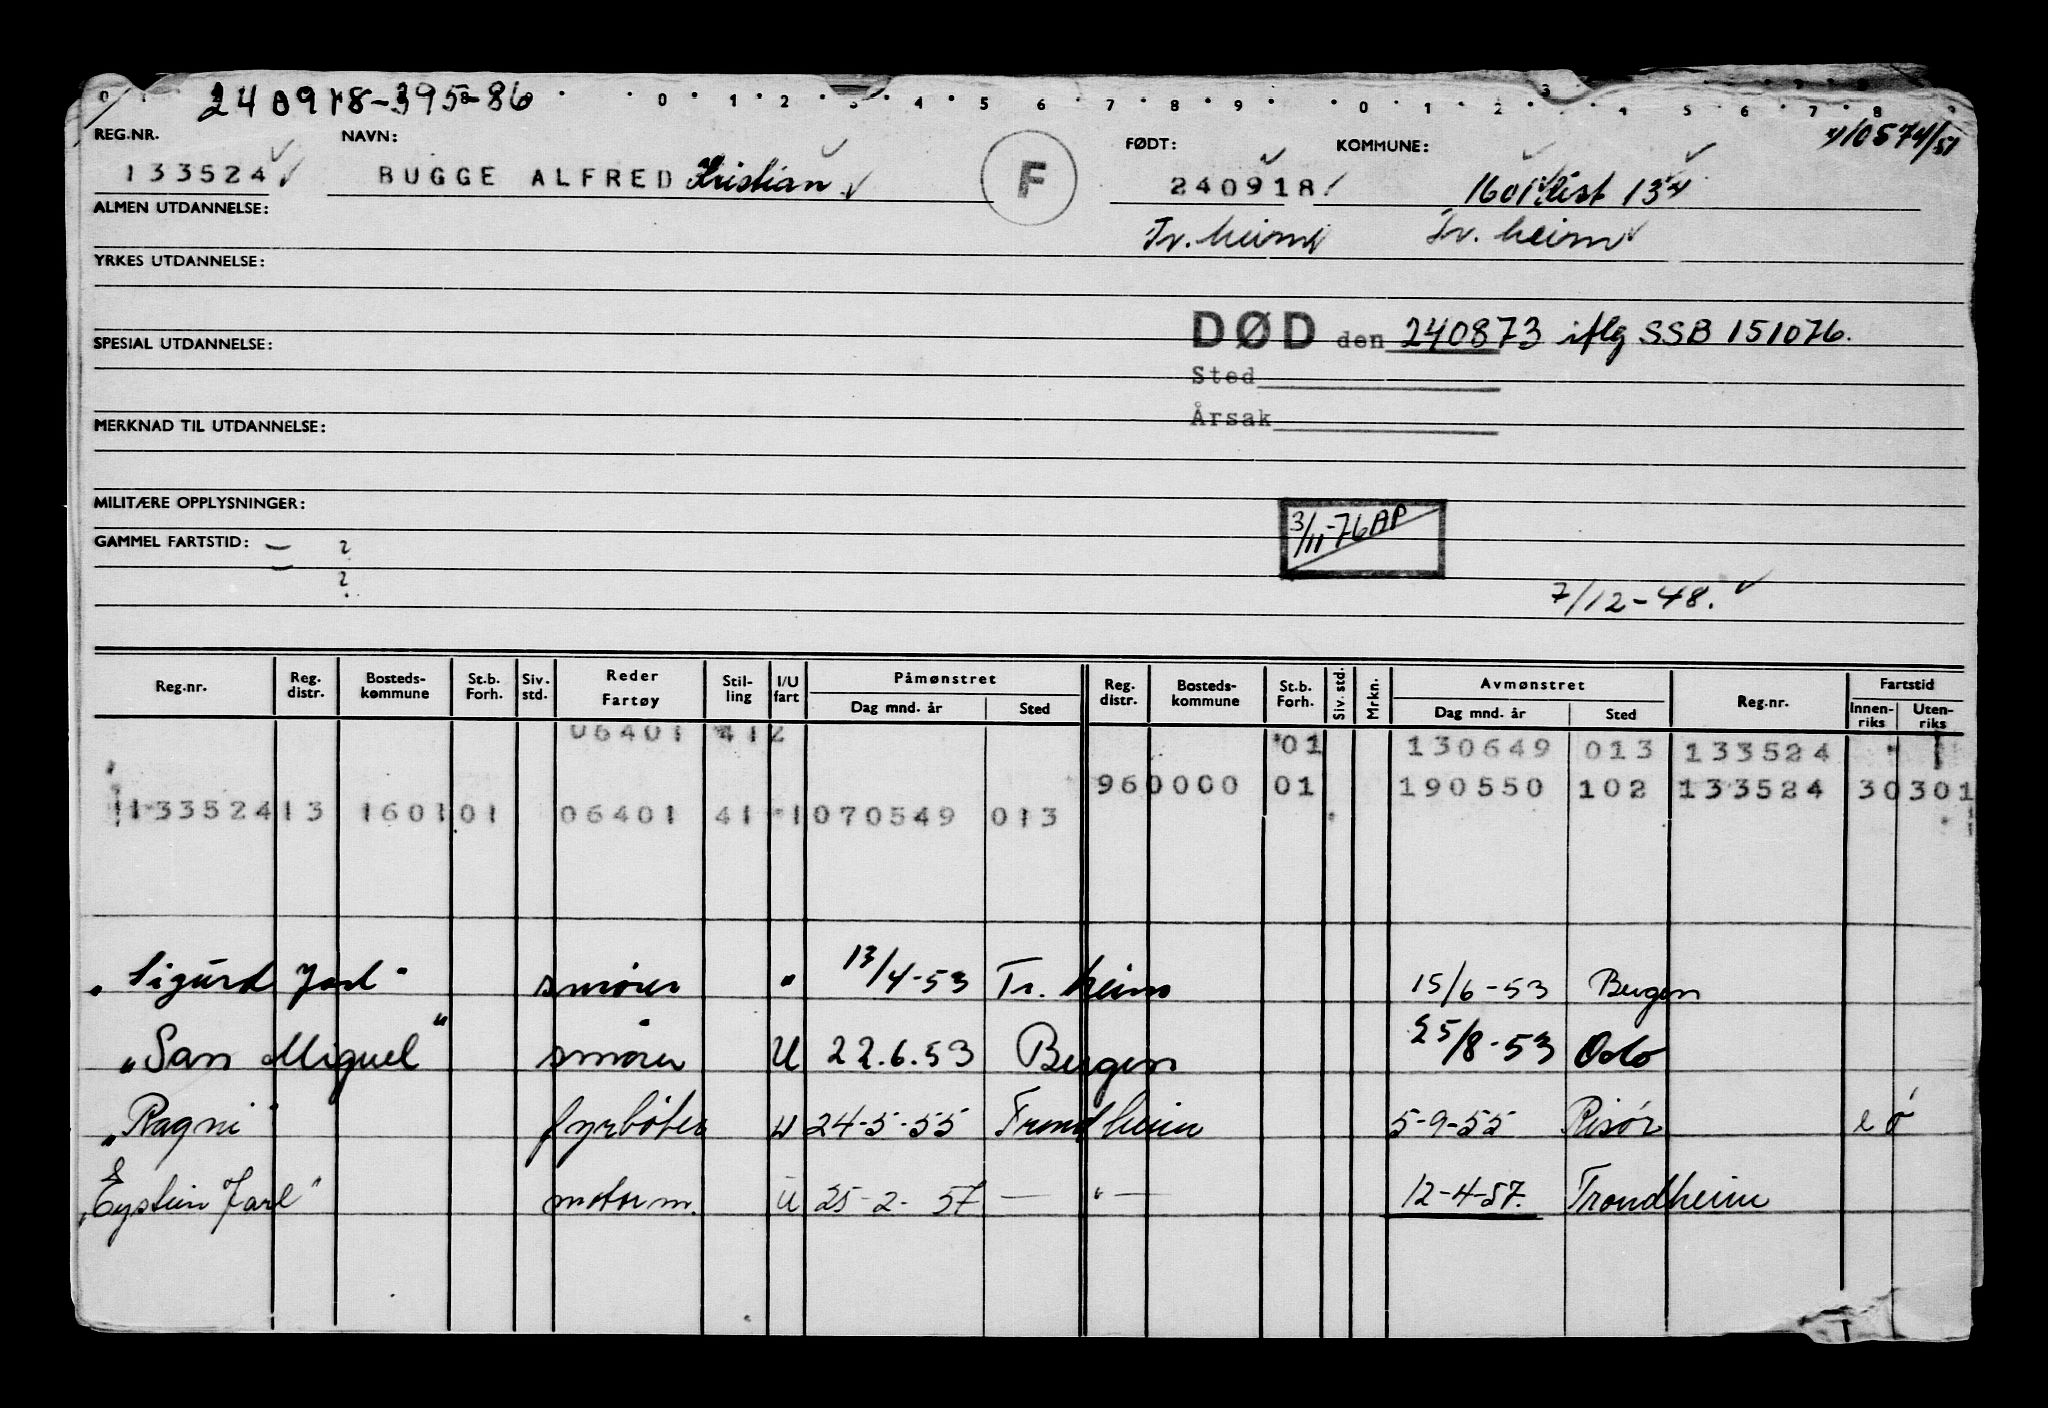 240918-395-86 0 1 2 3 4 5 6 7 8 9 0 1 2 3 4 5 6 7 8 9
REG.NR. NAVN: FØDT: KOMMUNE: 10574/51
133524 BUGGE ALFRED Kristian F 240918 1601
ALMEN UTDANNELSE: Tr.heim Tr.heim
YRKES UTDANNELSE:
DØD den 240873 iflg SSB 151076.
SPESIAL UTDANNELSE:
Sted
Årsak
MERKNAD TIL UTDANNELSE:
MILITÆRE OPPLYSNINGER:
3/11-76 AP
GAMMEL FARTSTID: ?
?
7/12-48.
Reg.nr. Reg. distr. Bosteds-kommune St.b. Forh. Siv. std. Reder Fartøy Stil-ling I/U fart Påmønstret Dag mnd. år Sted Reg. distr. Bosteds-kommune St.b. Forh. Siv. std. Mrkn. Avmønstret Dag mnd. år Sted Reg.nr. Fartstid Innen-riks Uten-riks
06401 412 01 130649 013 133524
960000 01 190550 102 133524 30301
133524 13 1601 01 06401 41 1 070549 013
"Sigurd Jarl" smører " 13/4-53 Tr. heim 15/6-53 Bergen
"San Miguel" smører U 22.6.53 Bergen 25/8-53 Oslo
"Ragni" fyrbøter U 24-5-55 Trondheim 5-9-55 Risør
"Eystein Jarl" motorm. U 25-2-57 — " — 12-4-57. Trondheim